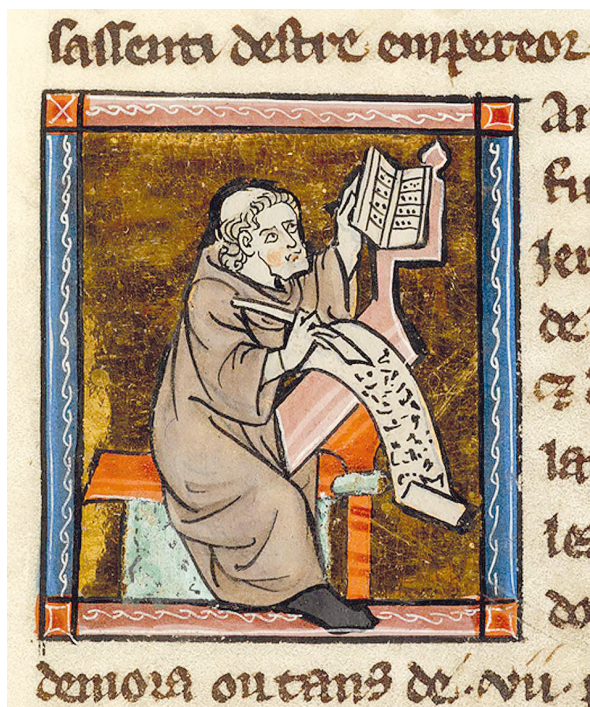 sassenti destre empereor
An
fu
Jer
de
⁊
la
les
do
demora outans de .vii. p